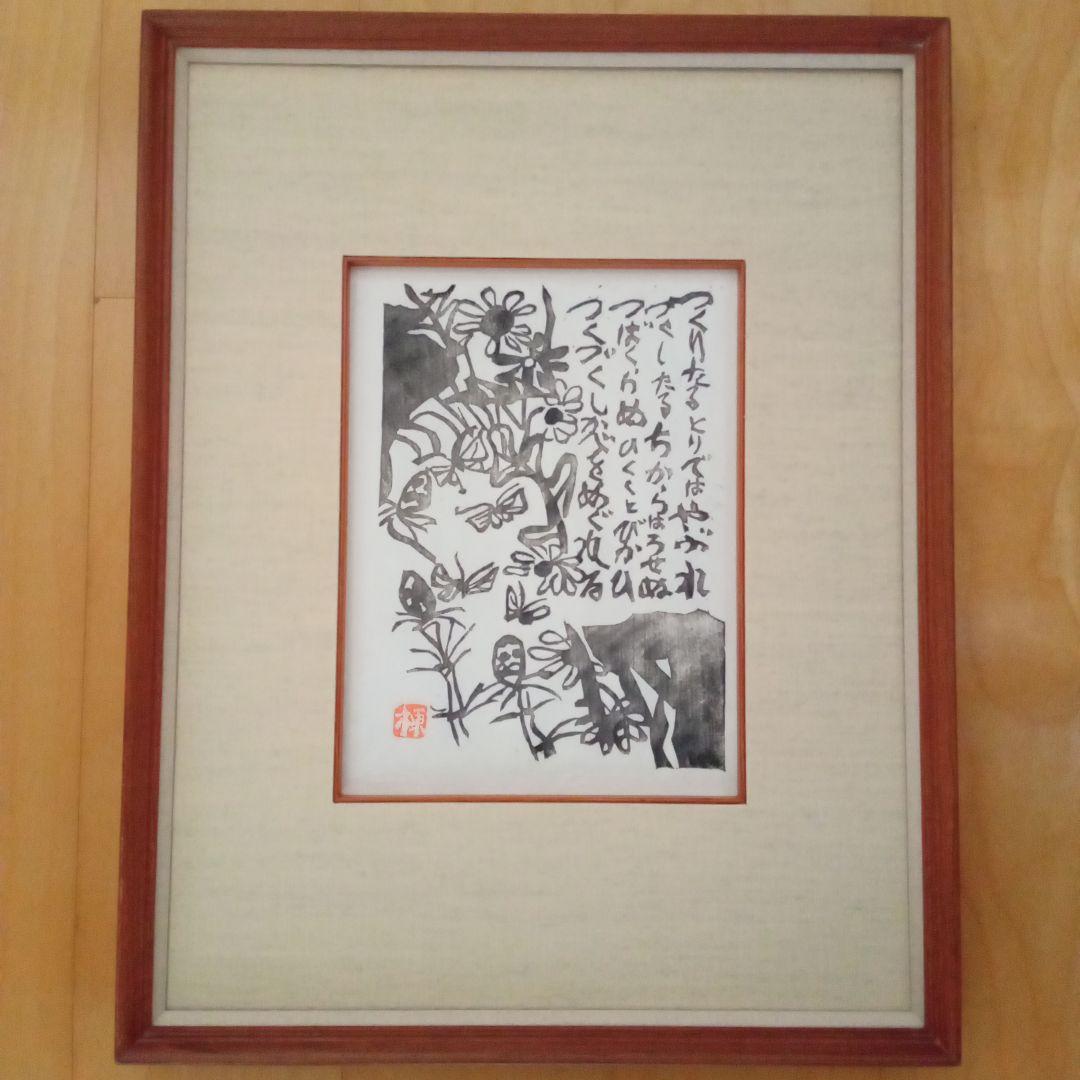 つくりたるとりではやぶれ
したるちからはうせぬ
つばくらめひくくとびかひ
つくづくしかべをめぐれる
棟